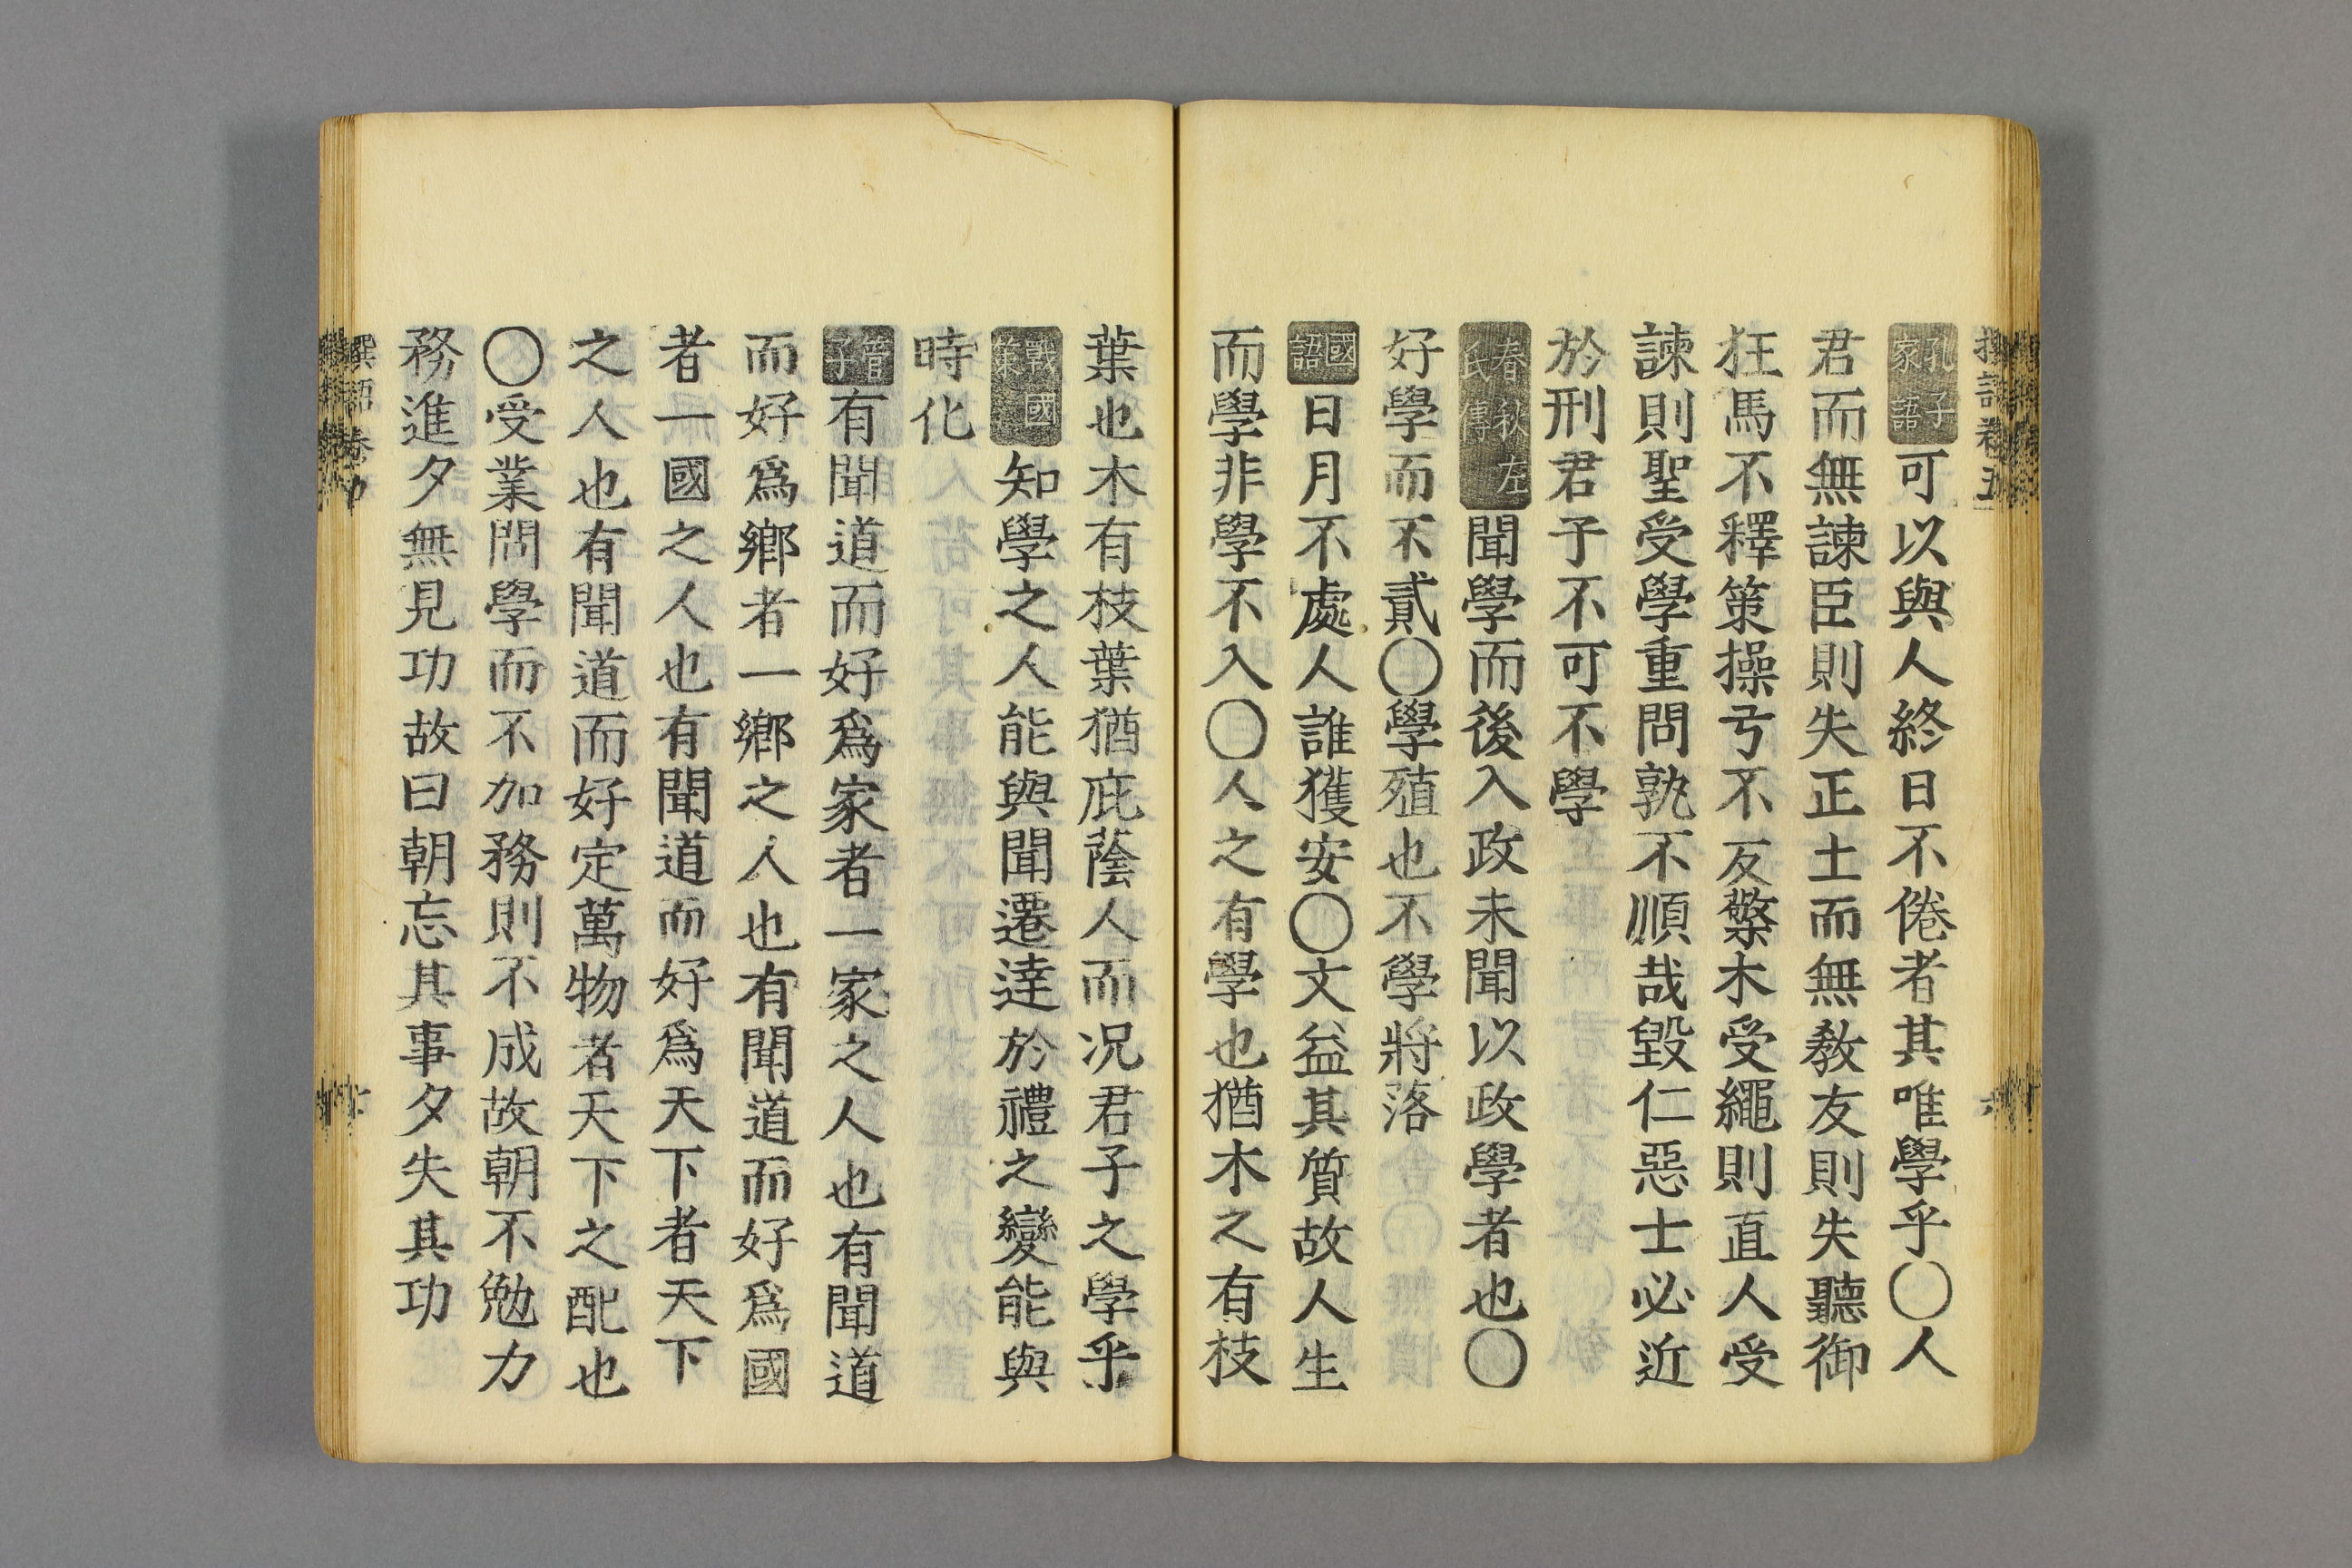 孔子家語可以與人終日不倦者其唯學乎〇人
君而無諫臣則失正士而無敎友則失聽御
狂馬不釋策操弓不反檠木受繩則直人受
諫則聖受學重問孰不順哉毀仁惡士必近
於刑君子不可不學
春秋左氏傳聞學而後入政未聞以政學者也〇
好學而不貳〇學殖也不學將落
國語日月不處人誰獲安〇文益其質故人生
而學非學不入〇人之有學也猶木之有枝
葉也木有枝葉猶庇蔭人而况君子之學乎
戰國策知學之人能與聞遷達於禮之變能與
時化
管子有聞道而好爲家者一家之人也有聞道
而好爲鄕者一鄕之人也有聞道而好爲國
者一國之人也有聞道而好爲天下者天下
之人也有聞道而好定萬物者天下之配也
〇受業問學而不加務則不成故朝不勉力
務進夕無見功故曰朝忘其事夕失其功